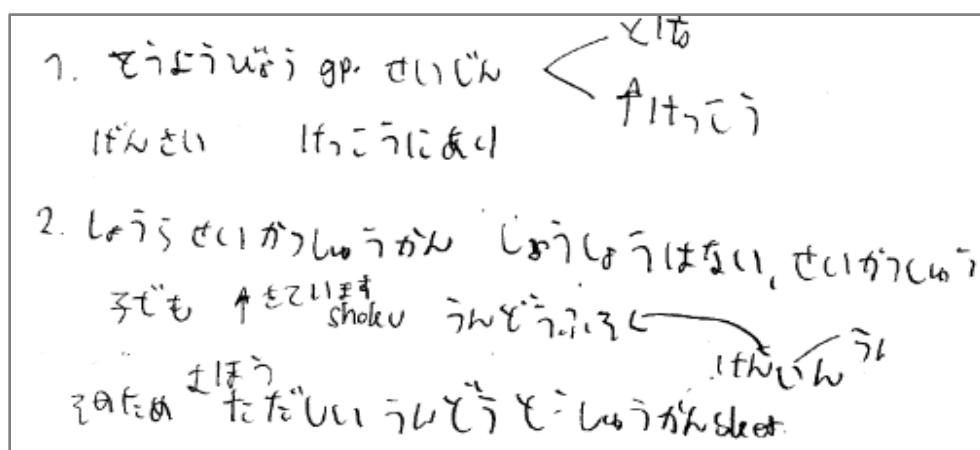 1. とうようびょう gp. せいじん
↑けっこう
げんさい けっこうにあり
2. しょうら せいかつしゅうかん しょうしょうはない、せいがつしゅう
子ども ↑きています
shoku うんどうふそく
げんいん うん
そのため まほう
ただしい うんどうと しゅうかん